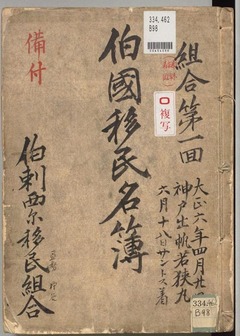 組合第一回
大正六年四月廿
神戸出帆若狭丸
六月十八日サントス着
伯國移民名簿
備付
伯剌西尔移民組合
334.462
B98
複写
334.462
B98